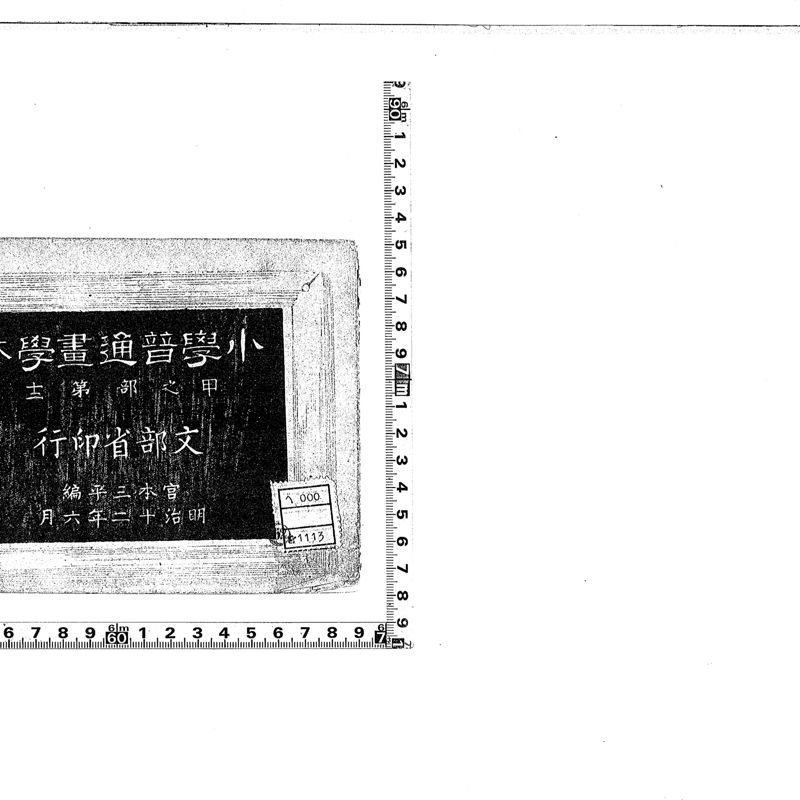 小學普通畫學本
甲之部第
文部省印行
宮本三平編
明治十二年六月
000
1113
9 6m 90 1 2 3 4 5 6 7 8 9 7m 1 2 3 4 5 6 7 8 9
6 7 8 9 6m 60 1 2 3 4 5 6 7 8 9 6 7